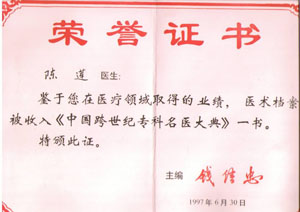 荣誉证书
陈莲 医生:
鉴于您在医疗领域取得的业绩，医术档案
被收入《中国跨世纪专科名医大典》一书。
特颁此证。
主编 钱信忠
1997年6月30日